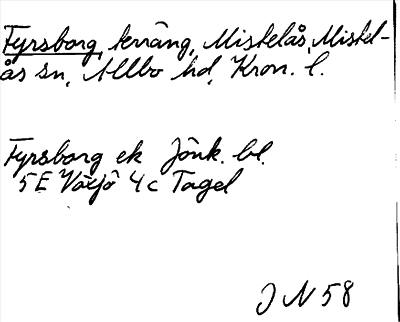 Fyrsborg, terräng, Mistelås, Mistel-
ås sn, Allbo hd, Kron. l.
Fyrsborg ek Jönk. bl.
5E Växjö 4c Tagel
J N 58